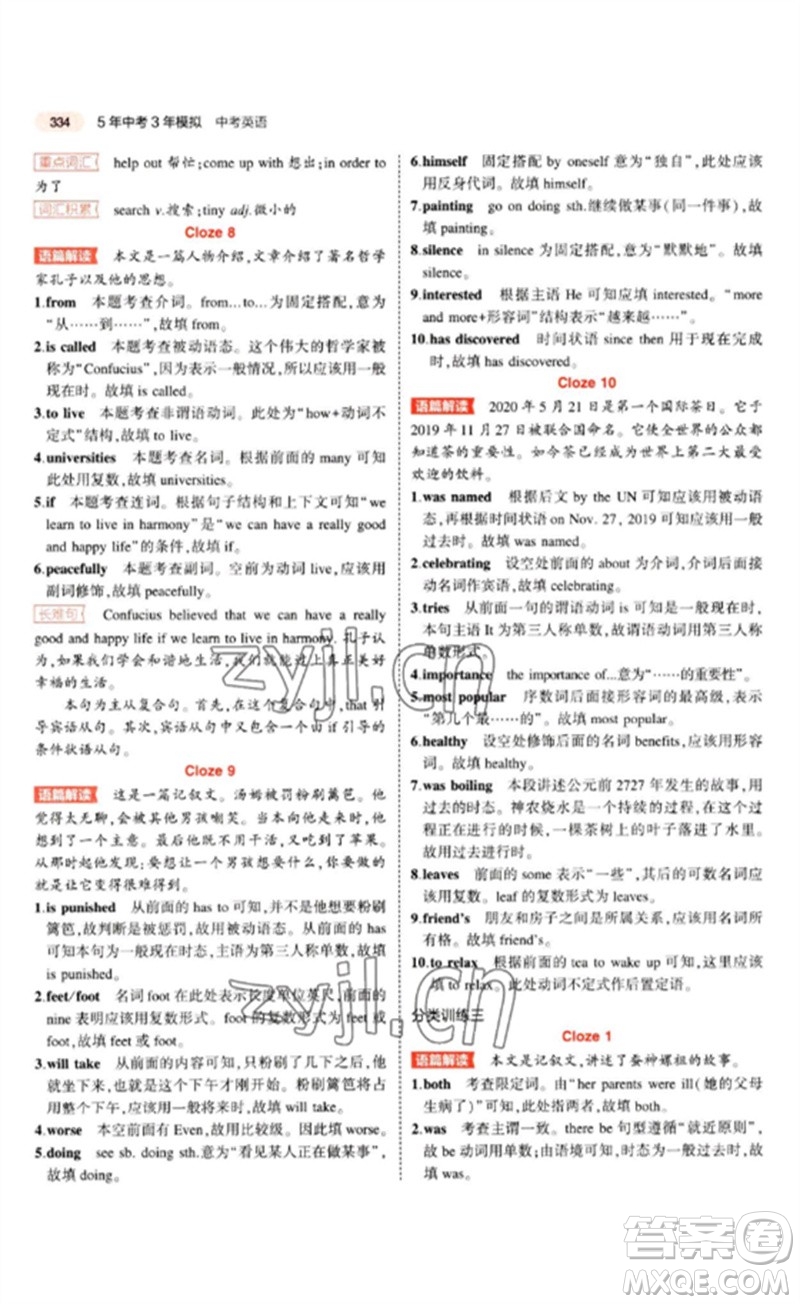 334 5年中考3年模拟 中考英语
重点词汇 help out 帮忙;come up with 想出;in order to
为了
词汇积累 search v.搜索;tiny adj.微小的
Cloze 8
语篇解读 本文是一篇人物介绍,文章介绍了著名哲学
家孔子以及他的思想。
1.from 本题考查介词。from...to...为固定搭配,意为
“从……到……”,故填 from。
2.is called 本题考查被动语态。这个伟大的哲学家被
称为“Confucius”,因表示一般情况,所以应该用一般
现在时的被动语态。故填 is called。
3.to live 本题考查非谓语动词。此处为“how+动词不
定式”结构,故填 to live。
4.universities 本题考查名词。根据前面的 many 可知
此处用复数,故填 universities。
5.if 本题考查连词。根据句子结构和上下文可知“we
learn to live in harmony”是“we can have a really good
and happy life”的条件,故填 if。
6.peacefully 本题考查副词。空前为动词 live,应该用
副词修饰,故填 peacefully。
长难句 Confucius believed that we can have a really
good and happy life if we learn to live in harmony. 孔子认
为,如果我们学会和谐地生活,我们就能过上真正美好
幸福的生活。
本句为主从复合句。首先,在这个复合句中,that 引
导宾语从句。其次,宾语从句中又包含了由 if 引导的
条件状语从句。
Cloze 9
语篇解读 这是一篇记叙文。汤姆被罚粉刷篱笆。他
觉得太无聊,会被其他男孩嘲笑。当本向他走来时,他
想到了一个主意。当本问他时,他忘记了吃苹果。
本也想粉刷,由此他发现:要想让一个男孩想做什么事,你
只需要使它变得很难得到。
1.is punished 从前面的 has to 可知,并不是他想要粉刷
篱笆,故判断是被惩罚,故用被动语态。根据前面的 has to
可知本句为一般现在时态,主语为第三人称单数,故填
is punished。
2.feet/foot 名词 foot 在此处表示长度单位英尺,前面的
nine 表明应该用复数形式。foot 的复数形式为 feet 或
foot,故填 feet 或 foot。
3.will take 从前面的内容可知,一旦他刷了几下之后,他
就坐下来,也就是在这个下午才刚刚开始。粉刷篱笆将占
用整个下午,应该用一般将来时。故填 will take。
4.worse 本空前面有 Even,故用比较级。故填 worse。
5.doing see sb. doing sth.意为“看见某人正在做某事”,
故填 doing。
6.himself 固定搭配 by oneself 意为“独自”,此处应该
用反身代词。故填 himself。
7.painting go on doing sth.继续做某事(同一件事),故
填 painting。
8.silence in silence 为固定搭配,意为“默默地”。故填
silence。
9.interested 根据主语 He 可知应填 interested。“more
and more+形容词”结构表示“越来越……”。
10.has discovered 时间状语 since then 用于现在完成
时,故填 has discovered。
Cloze 10
语篇解读 2020 年 5 月 21 日是第一个国际茶日。它于
2019 年 11 月 27 日被联合国命名。它使全世界的公众都
知道茶的重要性。如今茶已经成为世界上第二大最受
欢迎的饮料。
1.was named 根据后文 by the UN 可知应该用被动语
态,再根据时间状语 on Nov. 27, 2019 可知应该用一般
过去时。故填 was named。
2.celebrating 设空处前面的 about 为介词,介词后面接
动名词作宾语,故填 celebrating。
3.tries 从前面一句的谓语动词 is 可知应用一般现在时,
本句主语 It 为第三人称单数,故谓语动词用第三人称
单数形式。
4.importance the importance of...意为“……的重要性”。
5.most popular 序数词后面接形容词的最高级,表示
“第几个最……的”。故填 most popular。
6.healthy 设空处修饰后面的名词 benefits,应该用形容
词,故填 healthy。
7.was boiling 本段讲述公元前 2727 年发生的故事,用
过去的时态。神农烧水是一个持续的过程,在这个过程
进行的时候,一棵茶树上的叶子落进了水里。
故填 was boiling。
8.leaves 前面的 some 表示“一些”,其后的可数名词应
该用复数。leaf 的复数形式为 leaves。
9.friend's 朋友和房子之间是所属关系,应该用名词所
有格。故填 friend's。
10.to relax 根据前面的 tea to wake up 可知,这里应该
填 to relax。此处动词不定式作后置定语。
分类训练三
Cloze 1
语篇解读 本文是记叙文,讲述了蚕神嫘祖的故事。
1.both 考查限定词。由“her parents were ill(她的父母
生病了)”可知,此处指两者,故填 both。
2.was 考查主谓一致。there be 句型遵循“就近原则”,
故 be 动词用单数;由语境可知,时态为一般过去时。
故填 was。
zyjl.cn
zyjl.cn
答案圈
MXQE.COM